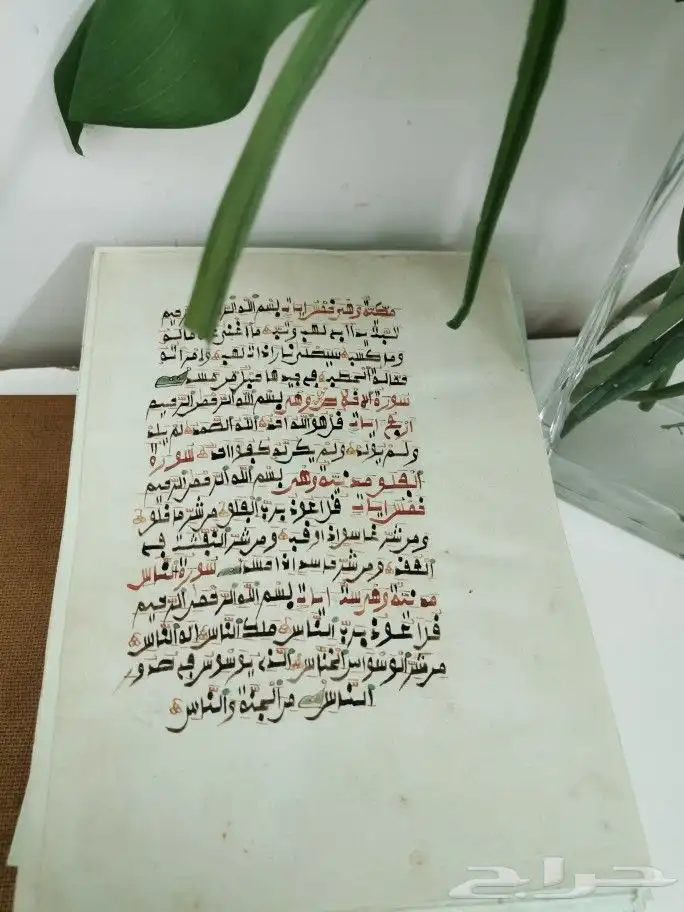 مكية وهي خمس ايات بسم الله الرحمن الرحيم
تبت يدا ابي لهب وتب ما اغنى عنه ماله
وما كسب سيصلى نارا ذات لهب وامراته
حمالة الحطب في جيدها حبل من مسد
سورة الاخلاص وهي بسم الله الرحمن الرحيم
اربع ايات قل هو الله احد الله الصمد لم يلد
ولم يولد ولم يكن له كفؤا احد سورة
الفلق مدنية وهي بسم الله الرحمن الرحيم
خمس ايات قل اعوذ برب الفلق من شر ما خلق
ومن شر غاسق اذا وقب ومن شر النفثت في
العقد ومن شر حاسد اذا حسد سورة الناس
مدنية وهي ست ايات بسم الله الرحمن الرحيم
قل اعوذ برب الناس ملك الناس اله الناس
من شر الوسواس الخناس الذي يوسوس في صدور
الناس من الجنة والناس
حراج